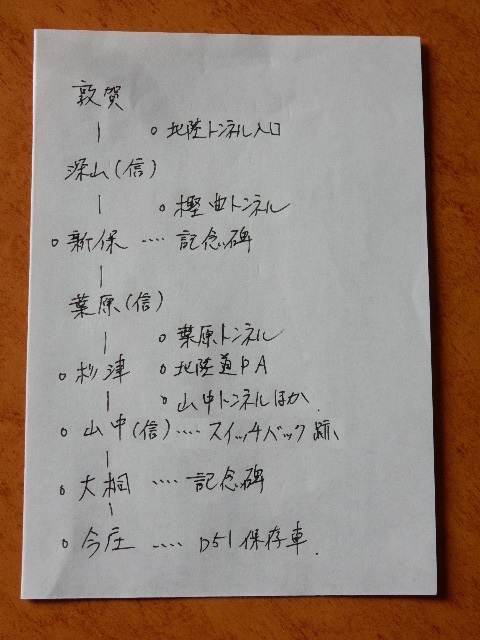 敦賀
| ○ 北陸トンネル入口
深山(信)
| ○ 樫曲トンネル
○ 新保 ‥‥ 記念碑
|
葉原(信)
| ○ 葉原トンネル
○ 杉津 ○ 北陸道PA
| ○ 山中トンネルほか
○ 山中(信)‥‥ スイッチバック跡、
|
○ 大桐 ‥‥ 記念碑
|
○ 今庄 ‥‥ D51保存車.